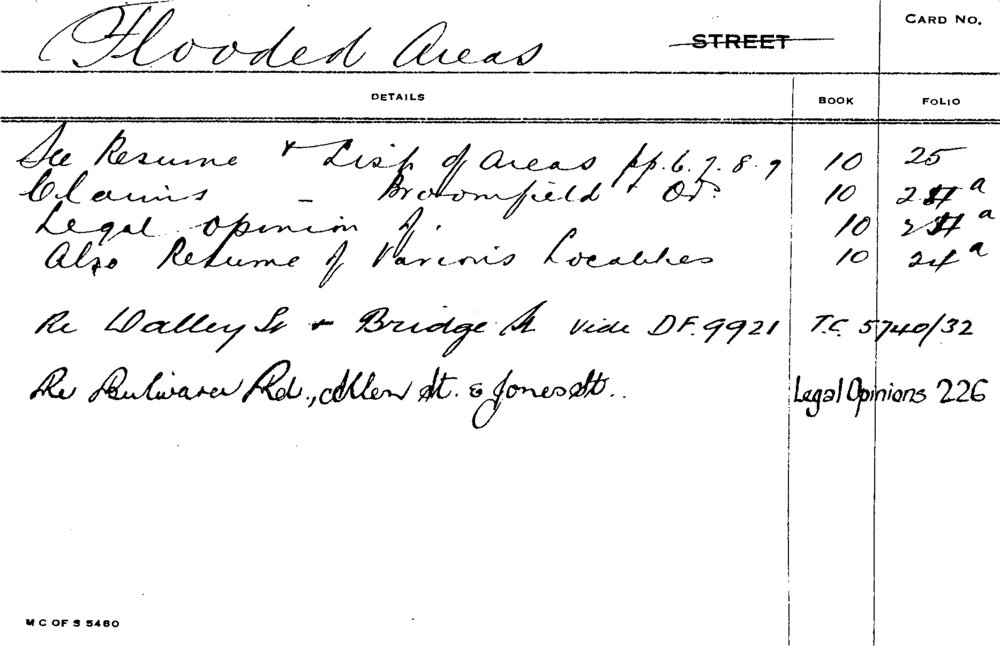 Flooded Areas STREET CARD NO.
DETAILS BOOK FOLIO
See Resume & List of Areas pp. 6. 7. 8. 9 10 25
Claims - Broomfield & Ors 10 a
Legal opinion 10 a
Also Resume of Various Localities 10 24 a
Re Walley St & Bridge St vide D.F. 9921 T.C. 5740/32
Re Bulwarra Rd., Allen St. & Jones St.. Legal Opinions 226
M C OF S 5480